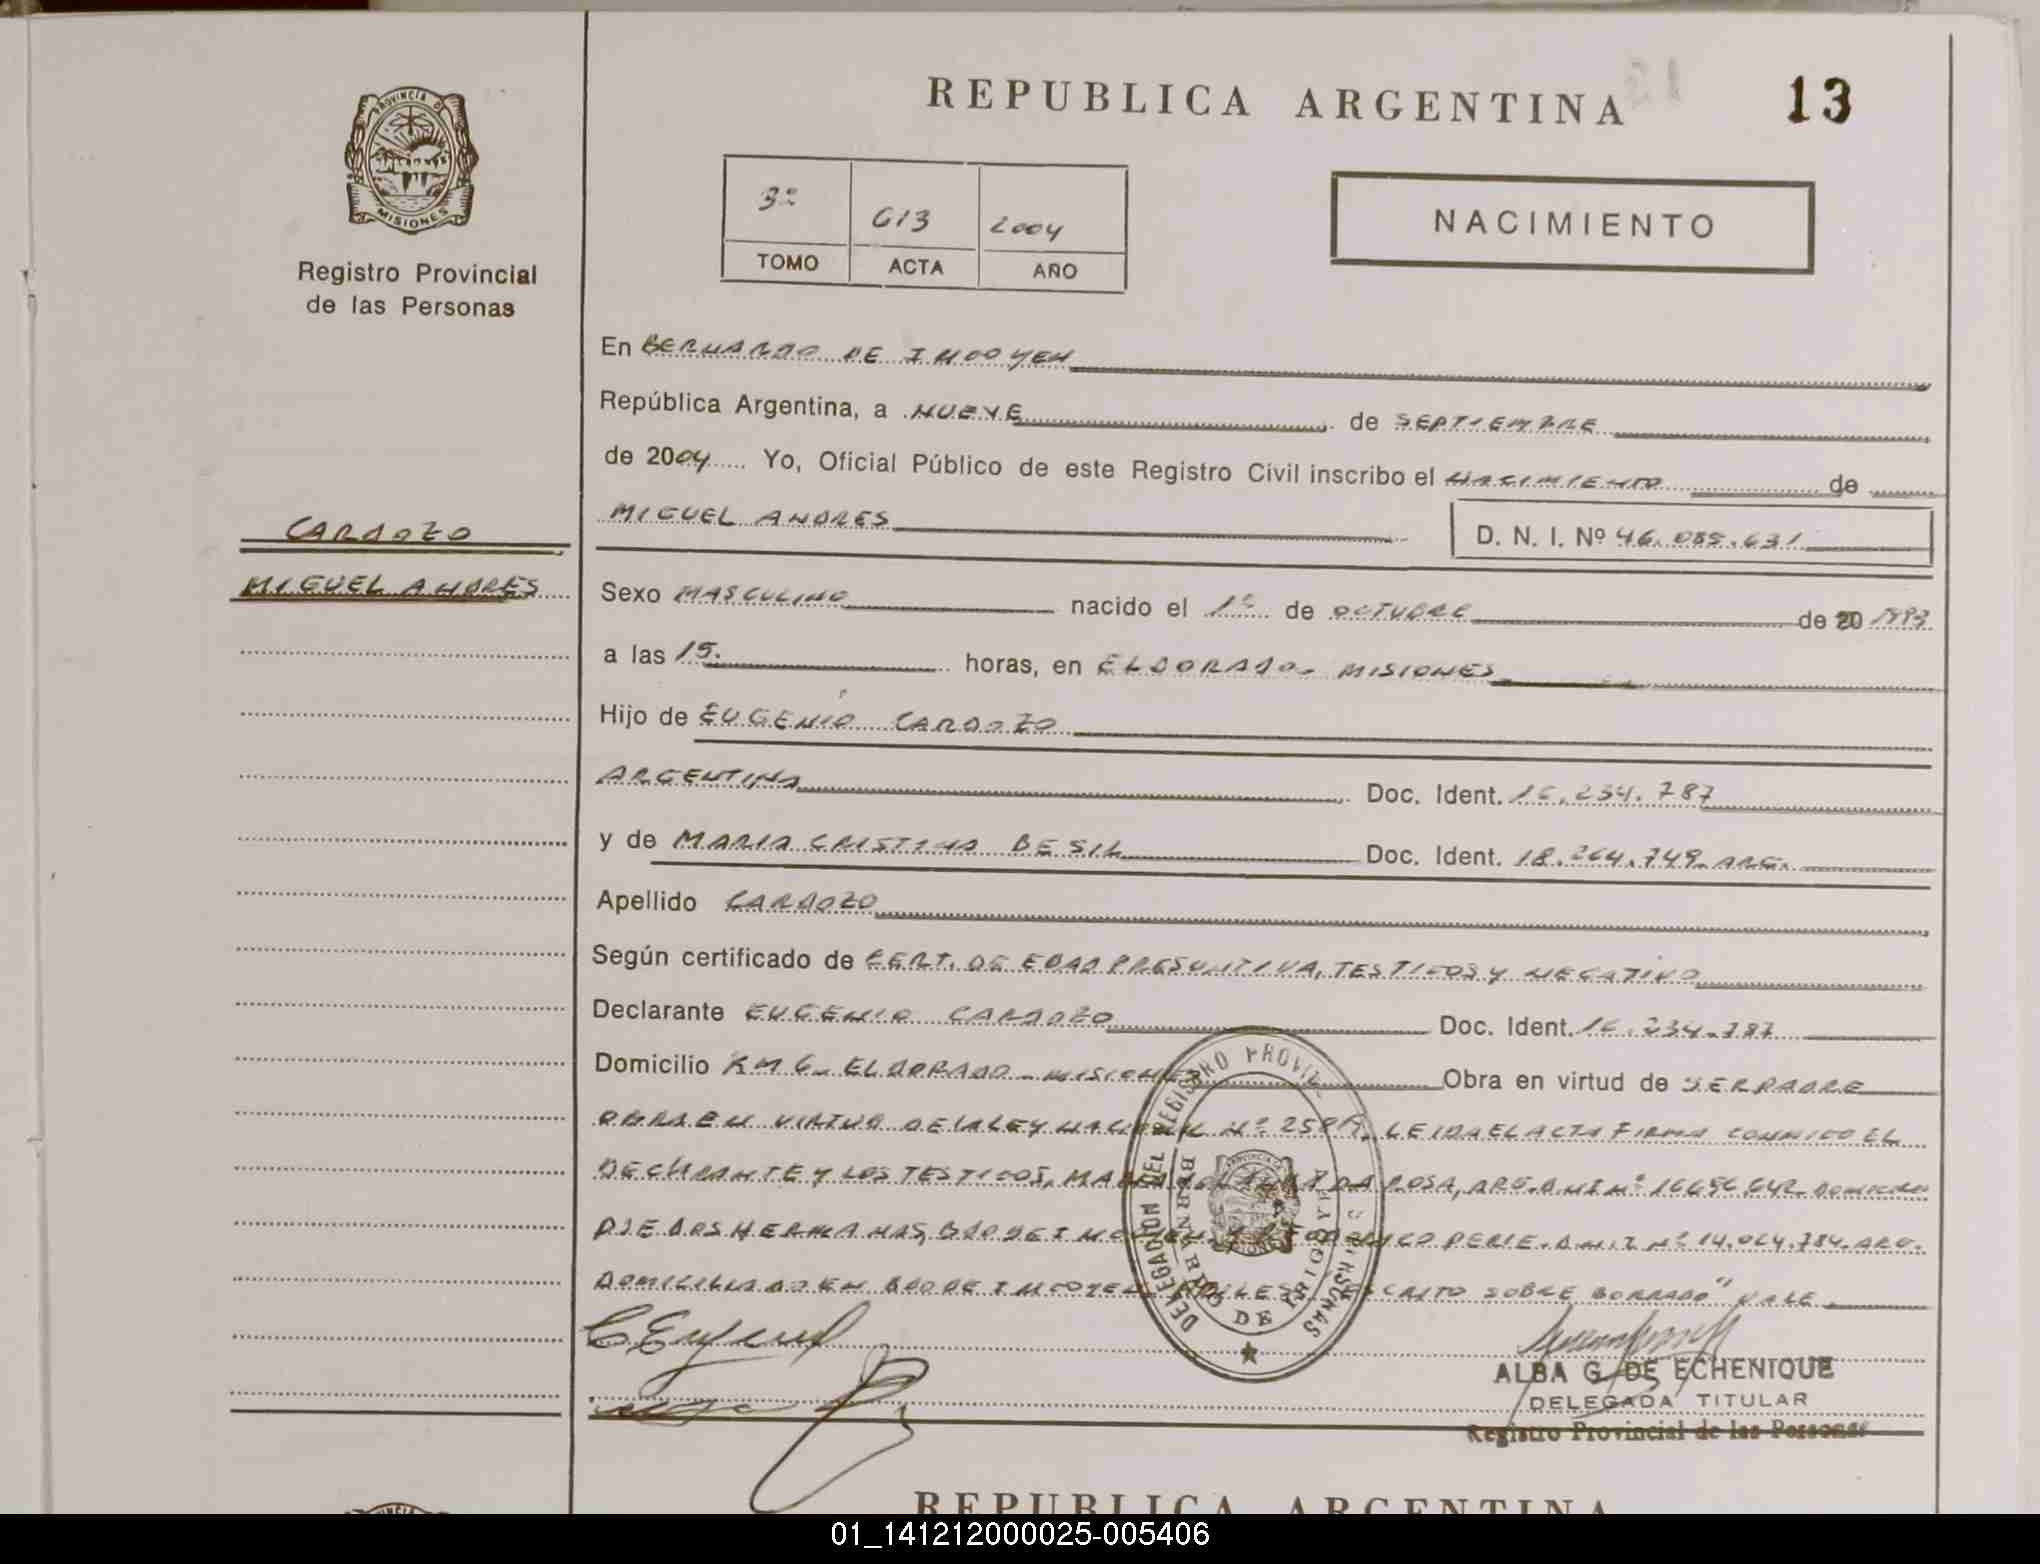 PROVINCIA DE
MISIONES
Registro Provincial
de las Personas
CARDOZO
MIGUEL ANDRES
REPUBLICA ARGENTINA
13
3º 613 2004
TOMO ACTA AÑO
NACIMIENTO
En BERNARDO DE IRIGOYEN
República Argentina, a NUEVE de SEPTIEMBRE
de 2004 Yo, Oficial Público de este Registro Civil inscribo el NACIMIENTO de
MIGUEL ANDRES D. N. I. Nº 46.085.631
Sexo MASCULINO nacido el 1º de OCTUBRE de 20 1993
a las 15. horas, en ELDORADO- MISIONES
Hijo de EUGENIO CARDOZO
ARGENTINA Doc. Ident. 16.234.787
y de MARIA CRISTINA Doc. Ident. 18.264.749- ARG.
Apellido CARDOZO
Según certificado de CERT. DE EDAD PRESUNTIVA, TESTIGOS Y NEGATIVO
Declarante EUGENIO CARDOZO Doc. Ident. 16.234.787
Domicilio KM 6- ELDORADO - MISIONES Obra en virtud de SER PADRE
OBRA EN VIRTUD DE LA LEY NACIONAL Nº LEIDA EL ACTA FIRMA CONMIGO EL
DECLARANTE Y LOS TESTIGOS, DA ROSA, ARG. DNI Nº 16696642-
DOS HERMANAS, BDO DE IRIGOYEN, D.N.I. Nº 14.064.784. ARG.
DOMICILIADO EN BDO DE IRIGOYEN ESCRITO SOBRE BORRADO" VALE
DELEGACION DEL REGISTRO PROVINCIAL DE LAS PERSONAS
BERNARDO DE IRIGOYEN
ALBA G. DE ECHENIQUE
DELEGADA TITULAR
Registro Provincial de las Personas
REPUBLICA ARGENTINA
01_141212000025-005406